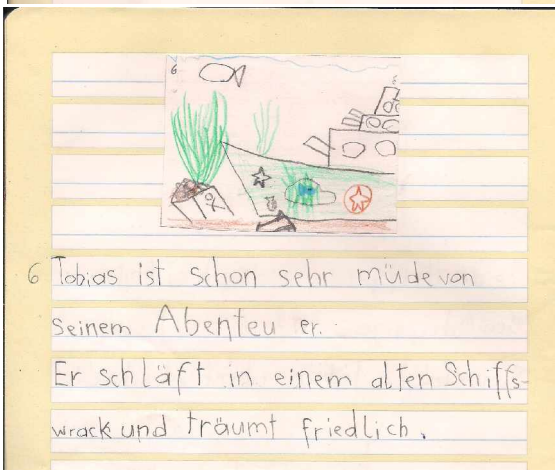 6
6 Tobias ist schon sehr müde von
seinem Abenteu er.
Er schläft in einem alten Schiffs-
wrack und träumt friedlich.